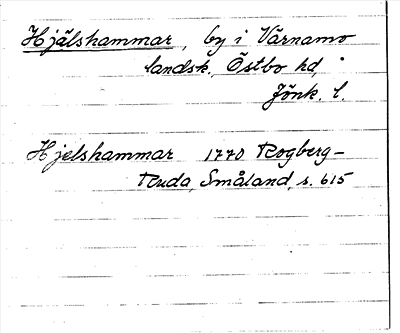 Hjälshammar, by i Värnamo
landsk., Östbo hd,
Jönk. l.
Hjelshammar 1770 Rogberg-
Ruda, Småland, s. 615